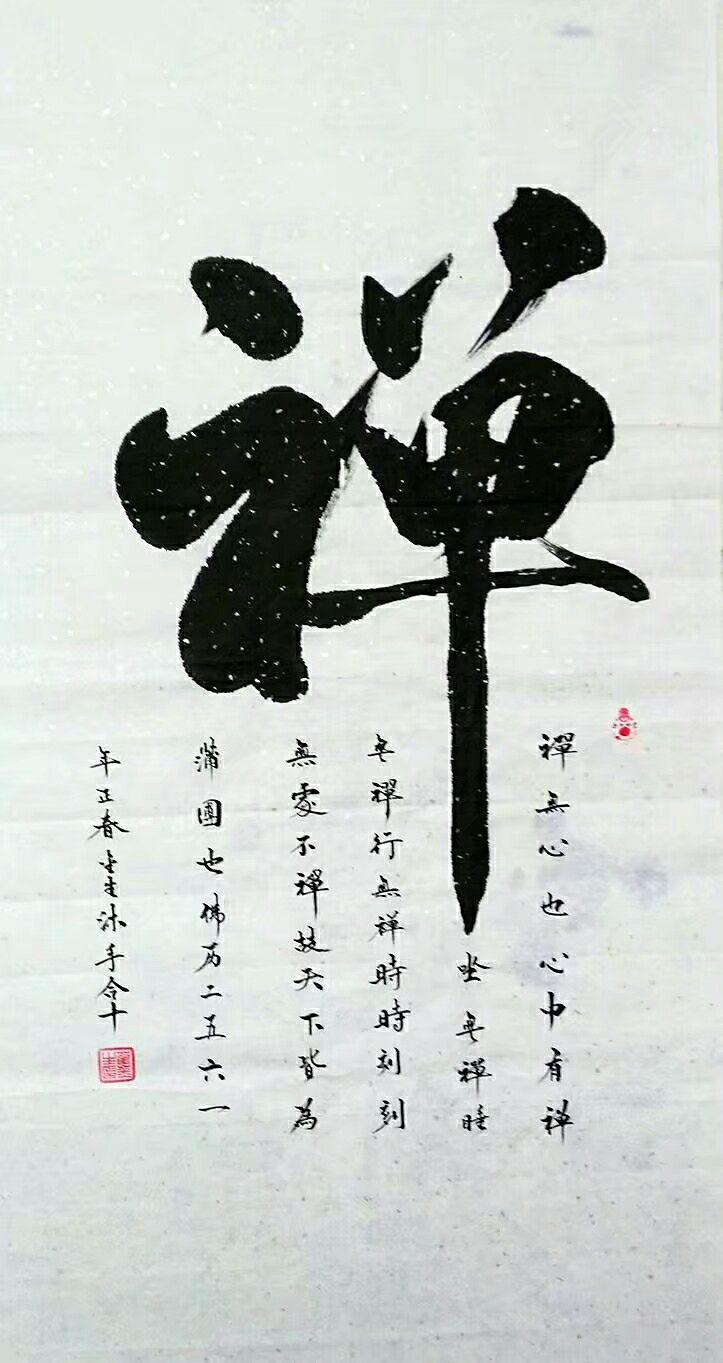 禪
禪無心也心中有禅
坐無禪睡
無禪行無禅時時刻刻
無處不禅故天下皆為
蒲團也佛历二五六一
年正春